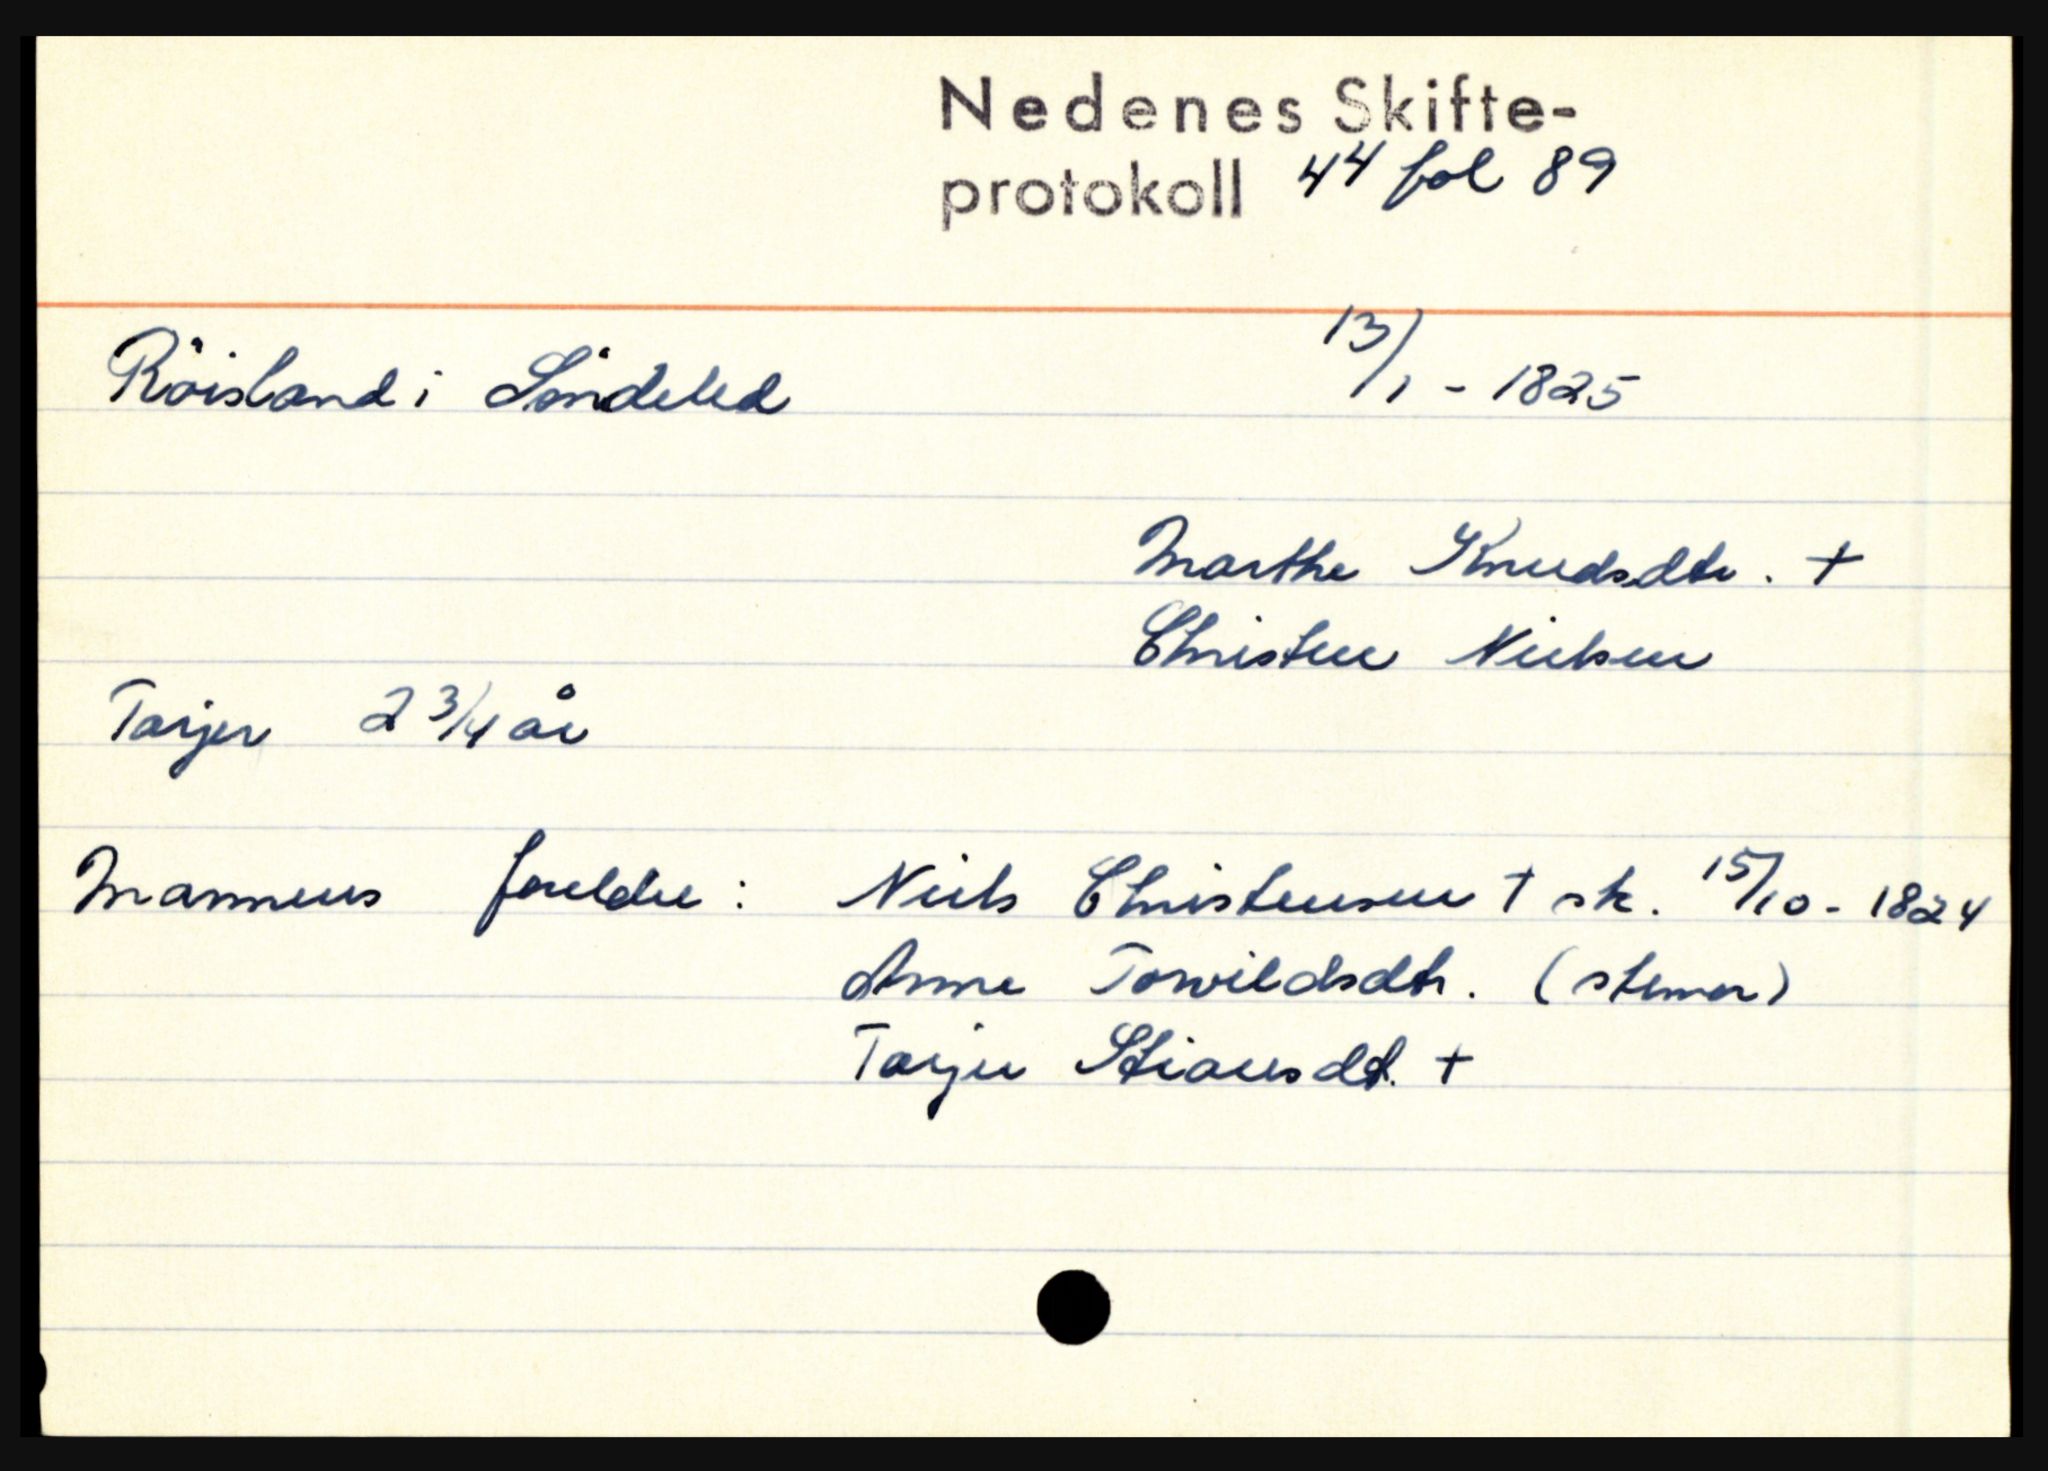 Nedenes Skifte-
protokoll 44 fol 89
Röisland i Söndeled 13/1 - 1825
Marthe Knudsdtr. +
Christen Nielsen
Tarjer 2 3/4 år
Mannens foreldre: Niels Christensen + sk. 15/10 - 1824
Anne Torvildsdtr. (stemor)
Tarjer Stiansdt. +